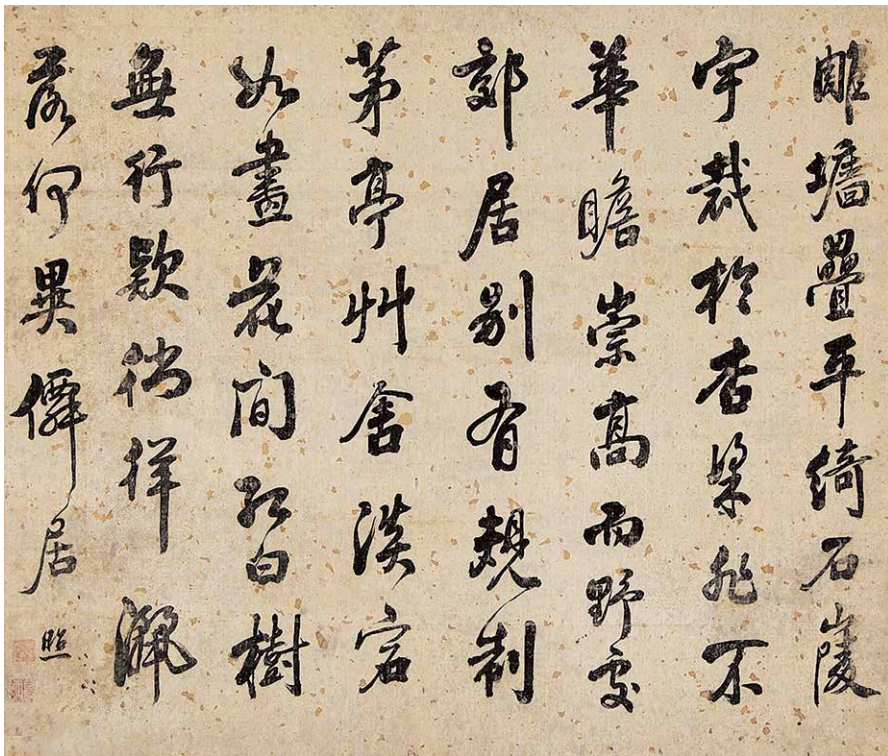 雕墻疊平綺石陵
宇裁於杏梁非不
華瞻崇高而野處
郊居别有規制
茅亭艸舍淡宕
如畫花間紅白樹
無行欵徜徉灑
落何異僊居 照